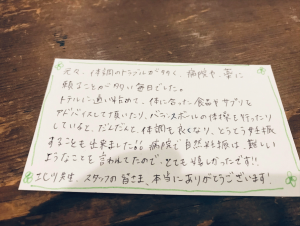 元々、体調のトラブルが多く、病院や、薬に
頼ることが多い毎日でした。
トテルに通い始めて、体に合った食品やサプリを
アドバイスして頂いたり、バランスボールの体操も行ったり
していると、だんだんと、体調も良くなり、とうとう妊娠
することも出来ました!! 病院で自然妊娠は、難しい
ようなことを言われてたので、とても嬉しかったです!!
先生、スタッフの皆さま、本当にありがとうございます!